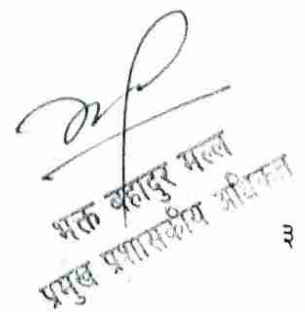 भक्त बहादुर मल्ल
प्रमुख प्रशासकीय अधिकृत
३